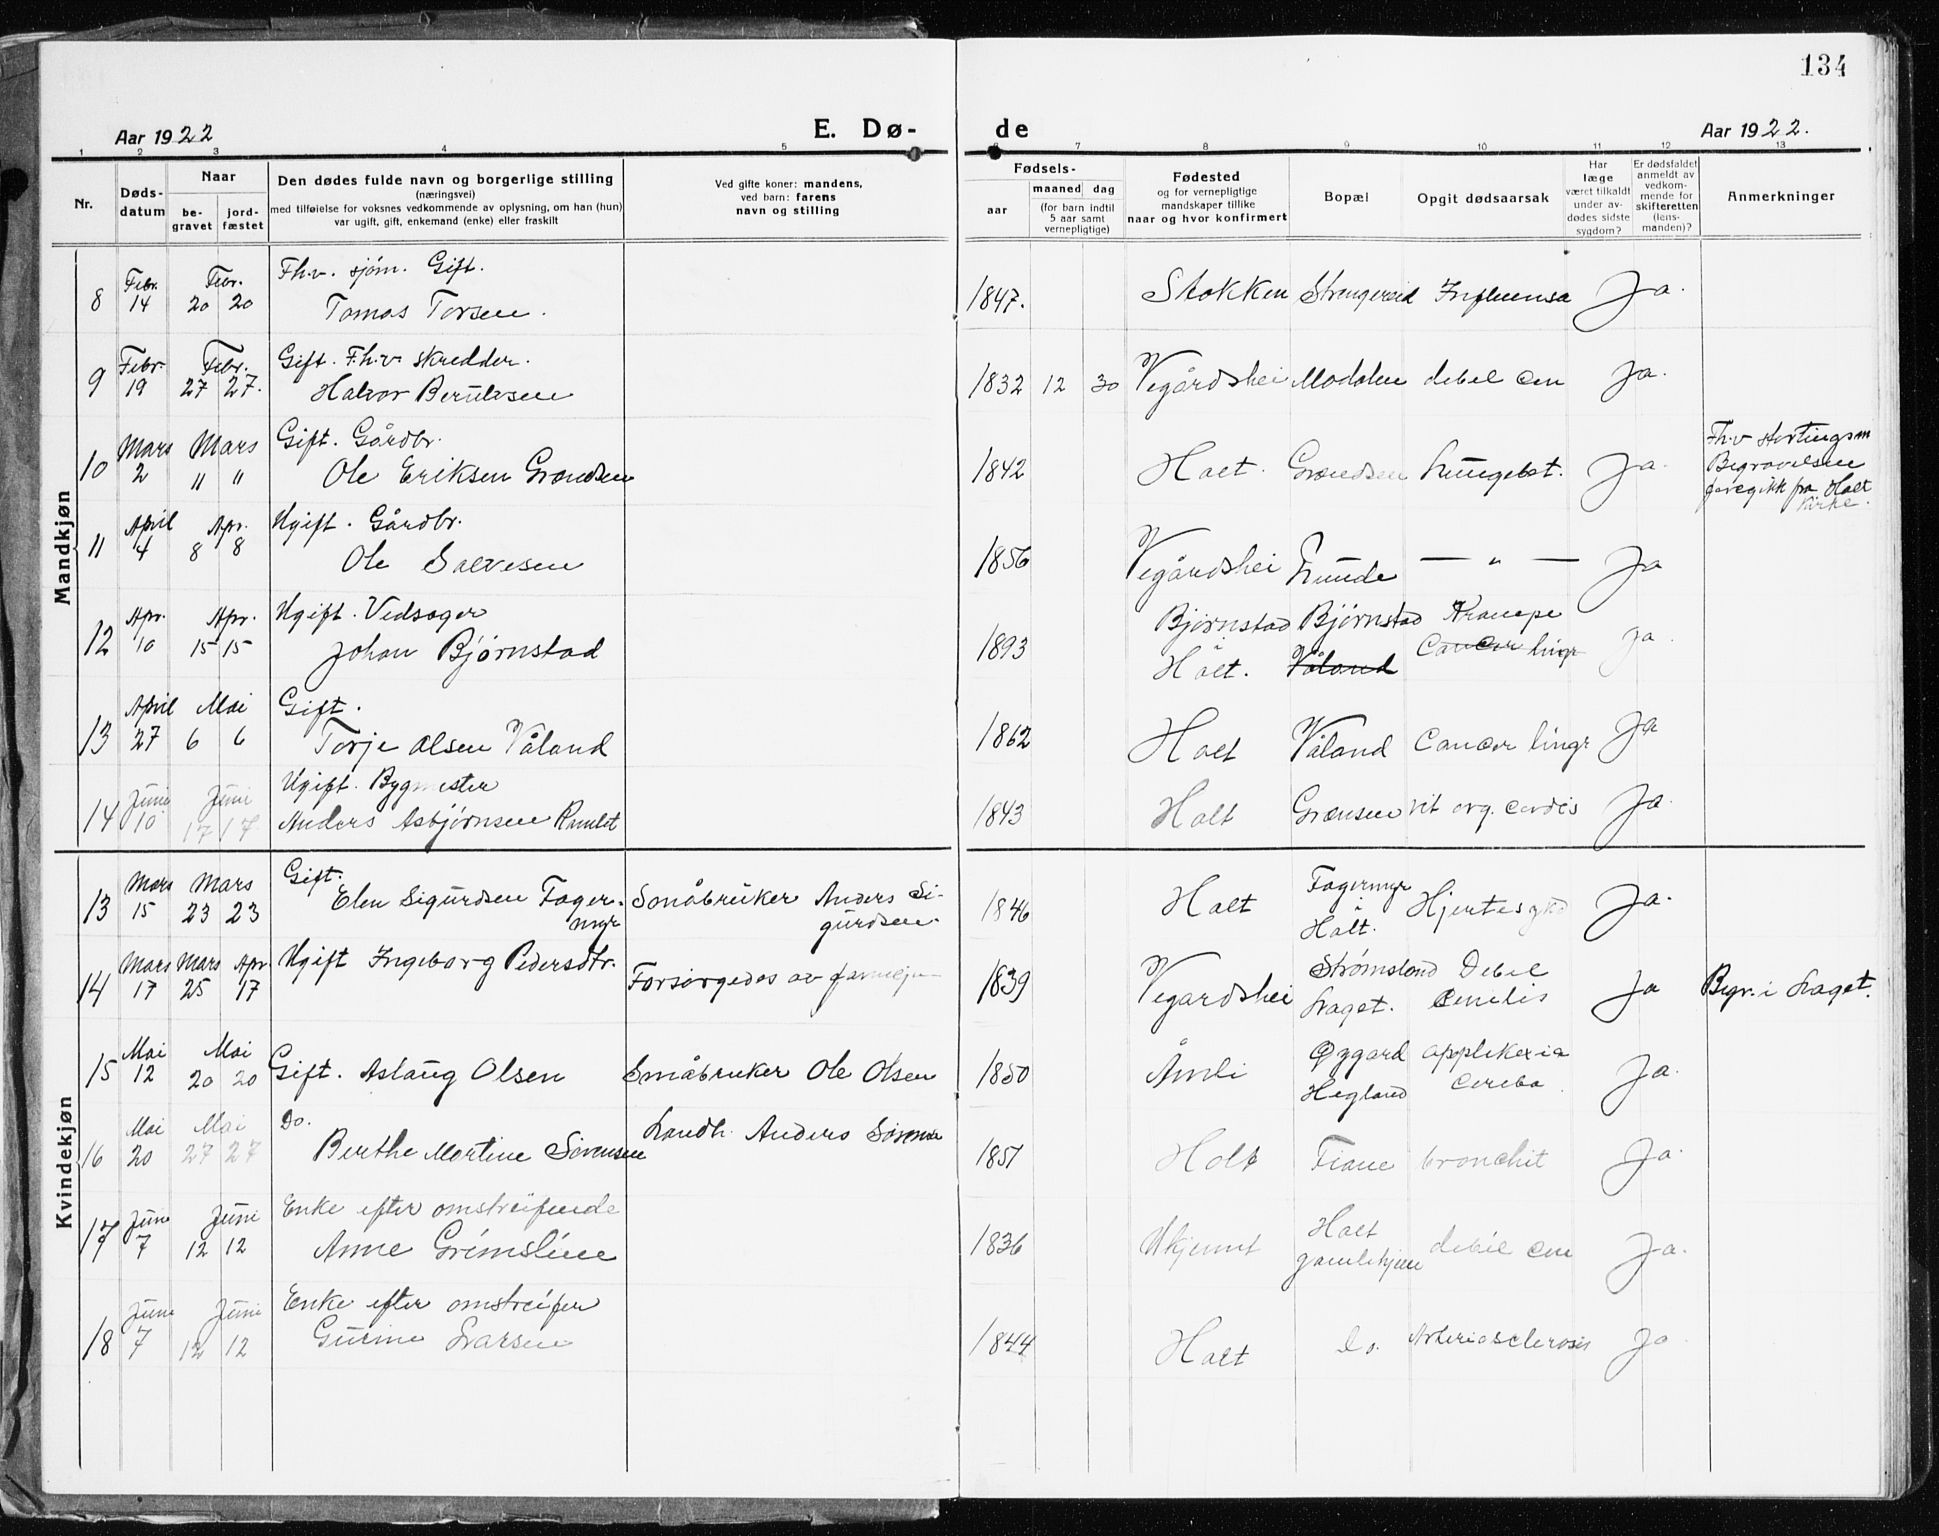 134
Aar 1922
E. Dø-
de
Aar 1922.
1 2 3 4 5 6 7 8 9 10 11 12 13
Nr.
Døds-
datum
Naar
be-
gravet
jord-
fæstet
Den dødes fulde navn og borgerlige stilling
(næringsvei)
med tilføielse for voksnes vedkommende av oplysning, om han (hun)
var ugift, gift, enkemand (enke) eller fraskilt
Ved gifte koner: mandens,
ved barn: farens
navn og stilling
Fødsels-
aar
maaned dag
(for barn indtil
5 aar samt
vernepligtige)
Fødested
og for vernepligtige
mandskaper tillike
naar og hvor konfirmert
Bopæl
Opgit dødsaarsak
Har
læge
været tilkaldt
under av-
dødes sidste
sygdom?
Er dødsfaldet
anmeldt av
vedkom-
mende for
skifteretten
(lens-
manden)?
Anmerkninger
Mandkjøn
Febr. Febr. Fh.v. sjøm. Gift.
8 14 20 20 Tomas Torsen. 1847. Stokken Strengereid Influensa Ja.
Febr. Febr. Gift. F.h.v. skredder.
9 19 27 27. Halvor Berulvsen 1832 12 30 Vegårdshei Modalen debil cen Ja.
Mars Mars Gift. Gårdbr.
10 2 " " Ole Eriksen Grændsen 1842 Holt. Grændsen Lungebet. Ja.
Fh.v Stortingsm
Begravelsen
foregikk fra Holt
Kirke.
April Apr. Ugift. Gårdbr.
11 4 8 8 Ole Salvesen 1856 Vegårdshei Lunde — " — Ja
Apr. Apr. Ugift. Vedsager
12 10 15 15 Johan Bjørnstad 1893 Bjørnstad Bjørnstad Krampe Ja.
Holt. Våland Cancer lingr
April Mai Gift.
13 27 6 6 Torje Olsen Våland 1862 Holt Våland Cancer lingr Ja
Juni Juni Ugift. Bygmester
14 10 17 17 Anders Asbjørnsen Ramlet 1843 Holt Grænsen vit org. cordis Ja.
Kvindekjøn
Mars Mars Gift.
13 15 23 23 Elen Sigurdsen Foger-
myr
Småbruker Anders Si-
gurdsen. 1846 Holt Fogermyr
i
Holt. Ja.
Mars Mars Apr. Ugift Ingeborg Pedersdtr.
14 17 25 17 Forsørgedes av 1839 Vegardshei Strømsland
Laget. Debil
cenilis Ja Begr. i Laget.
Mai Mai
15 12 20 20 Gift. Aslaug Olsen Småbruker Ole Olsen 1850 Åmli Øygard
Hegland
cereba Ja.
Mai Mai Do.
16 20 27 27 Berthe Martine Sørensen Landh. Anders Sørensen 1851 Holt Fiane bronchit Ja.
Juni Juni Enke efter omstreifende
17 7 12 12 Anne Grimsline 1836 Ukjennt Holt
gamlehjem debil cen Ja.
Juni Juni Enke efter omstreifer
18 7 12 12 Gurine Larsen 1844 Holt Do. Arteriosclerosis Ja.